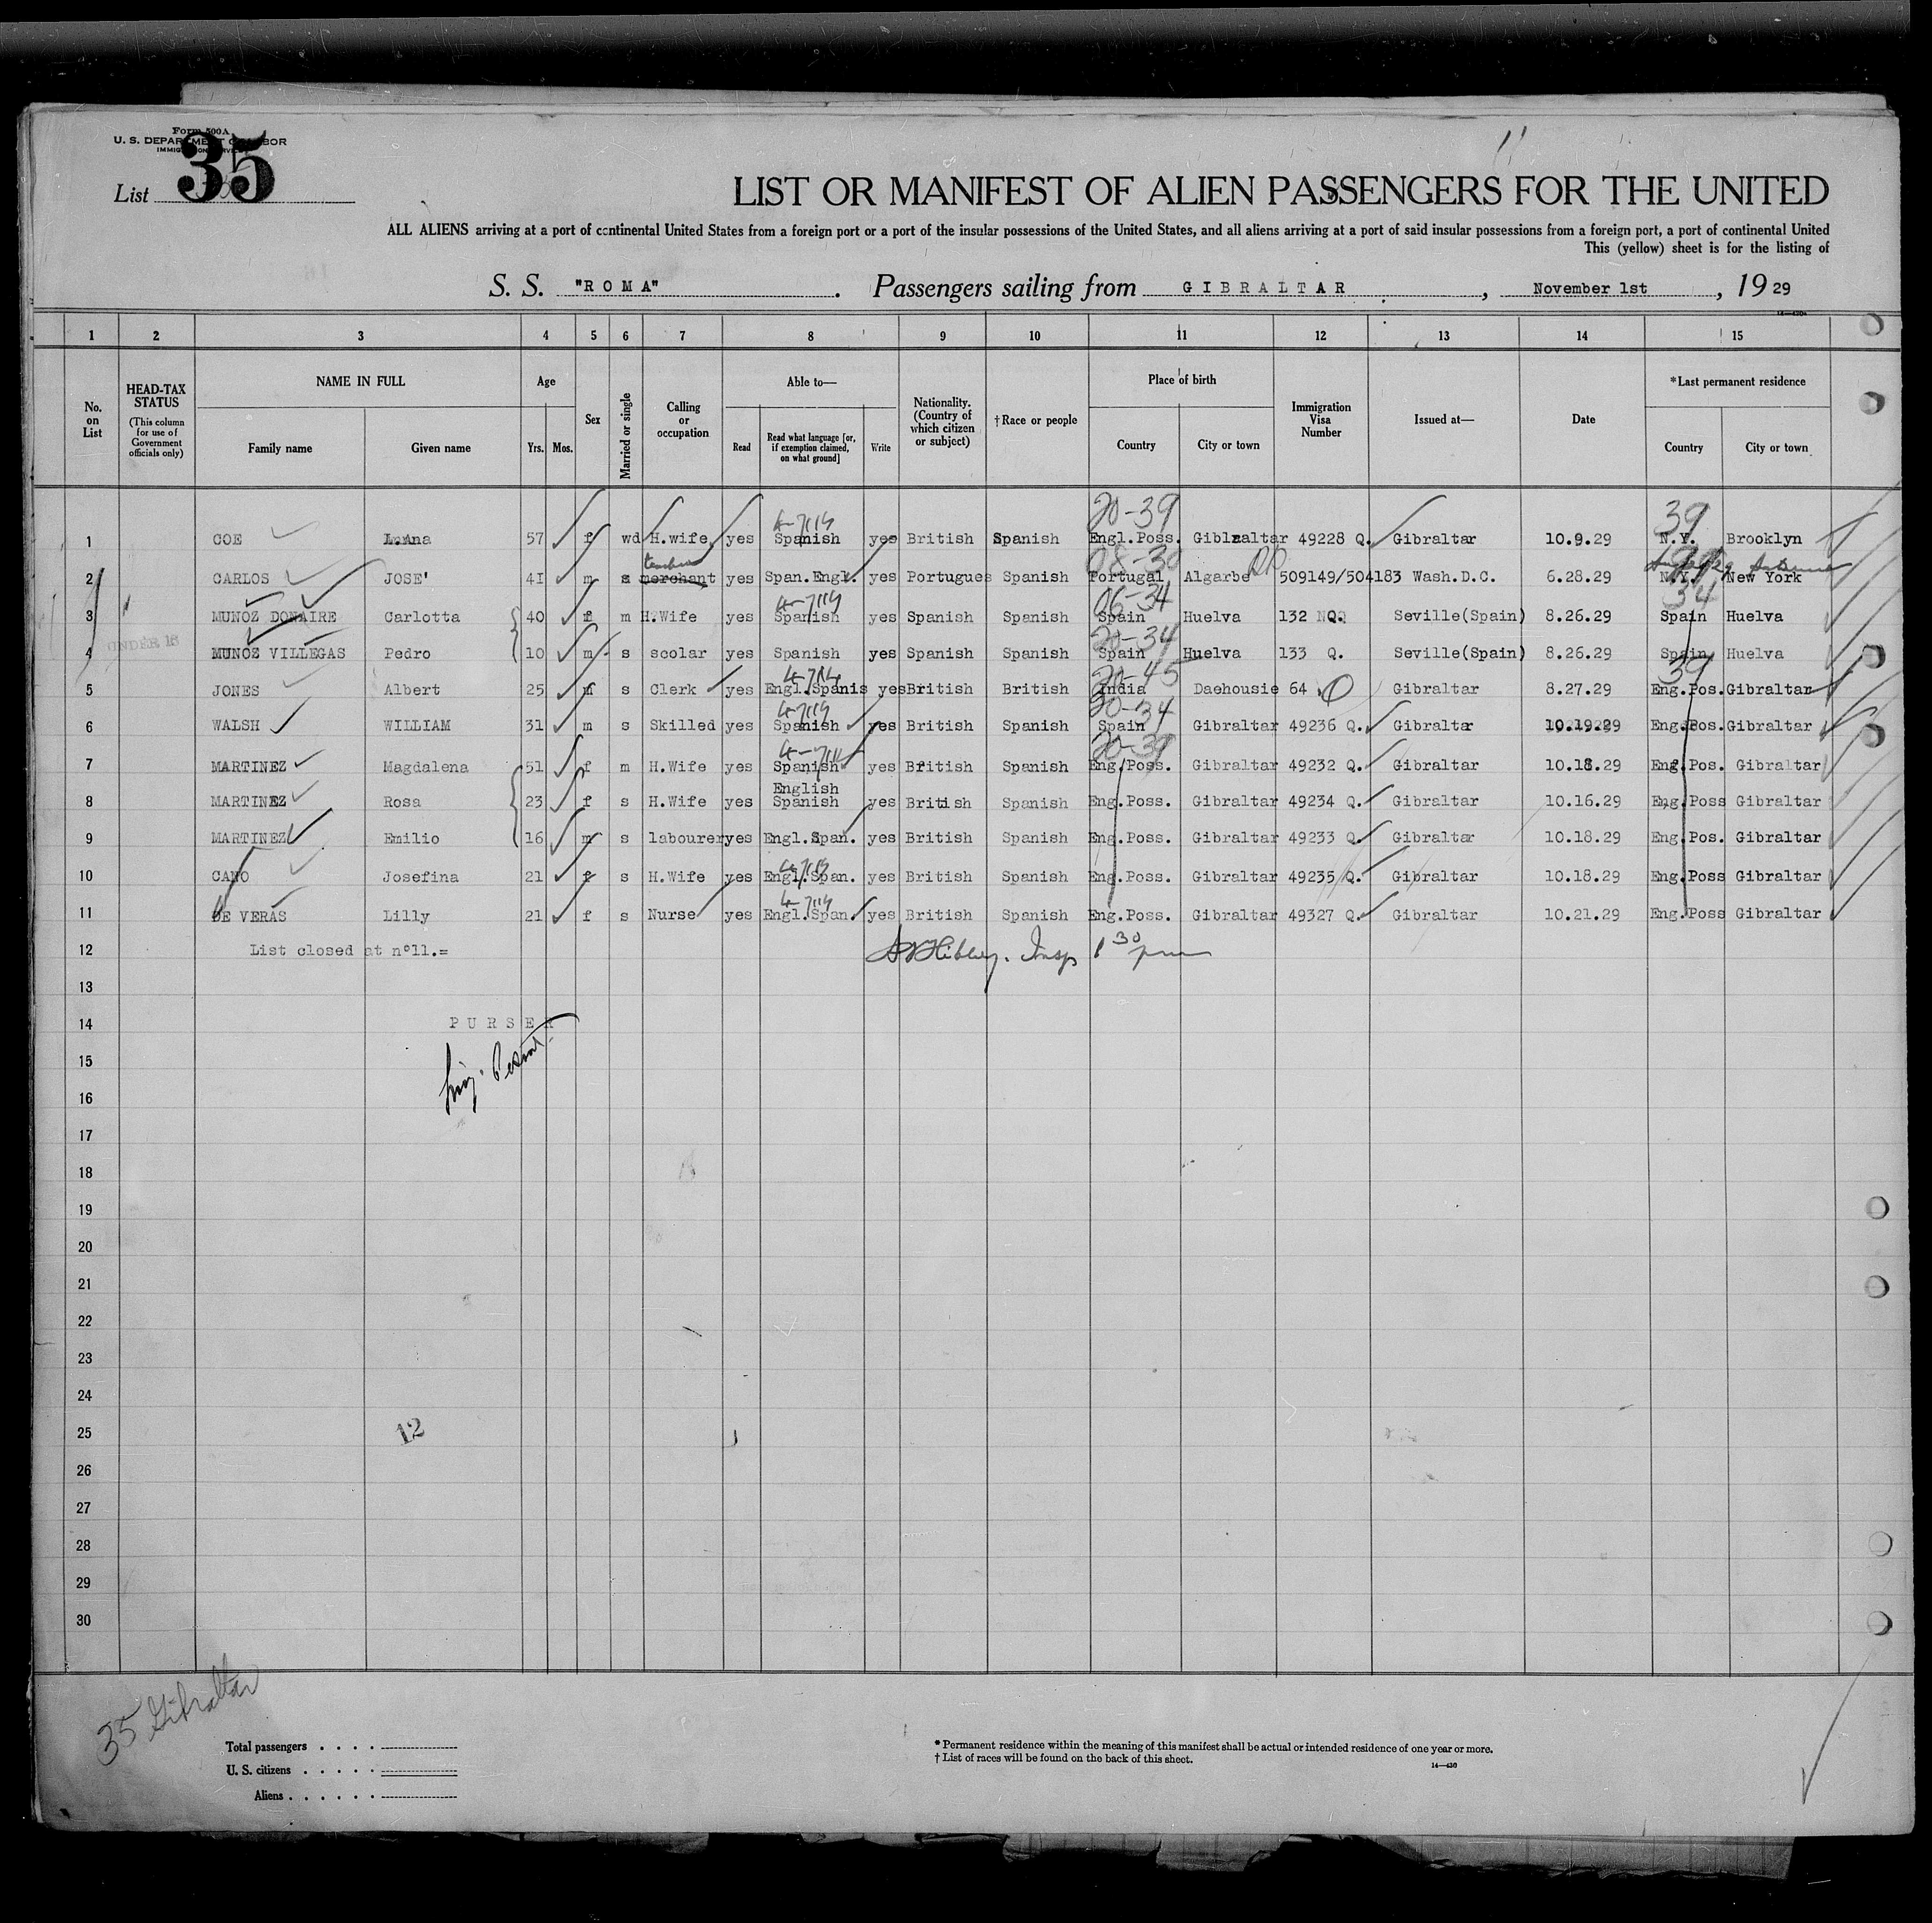 Form 500A
U. S. DEPARTMENT OF LABOR
IMMIGRATION SERVICE
List 35
LIST OR MANIFEST OF ALIEN PASSENGERS FOR THE UNITED
ALL ALIENS arriving at a port of continental United States from a foreign port or a port of the insular possessions of the United States, and all aliens arriving at a port of said insular possessions from a foreign port, a port of continental United
This (yellow) sheet is for the listing of
S. S. "ROMA". Passengers sailing from GIBRALTAR, November 1st, 1929
1 2 3 4 5 6 7 8 9 10 11 12 13 14 15
No. on List
HEAD-TAX STATUS (This column for use of Government officials only)
NAME IN FULL Family name Given name
Age Yrs. Mos.
Sex
Married or single
Calling or occupation
Able to— Read Read what language [or, if exemption claimed, on what ground] Write
Nationality. (Country of which citizen or subject)
†Race or people
Place of birth Country City or town
Immigration Visa Number
Issued at—
Date
*Last permanent residence Country City or town
20-39 39
1 COE Anna 57 f wd H.wife yes Spanish yes British Spanish Engl.Poss. Gibraltar 49228 Q. Gibraltar 10.9.29 N.Y. Brooklyn
08-30
2 CARLOS JOSE' 41 m s merchant yes Span.Engl. yes Portugues Spanish Portugal Algarbe 509149/504183 Wash.D.C. 6.28.29 N.Y. New York
06-34 34
3 MUNOZ DONAIRE Carlotta 40 f m H.Wife yes Spanish yes Spanish Spanish Spain Huelva 132 NQ. Seville(Spain) 8.26.29 Spain Huelva
UNDER 16
20-34
4 MUNOZ VILLEGAS Pedro 10 m s scolar yes Spanish yes Spanish Spanish Spain Huelva 133 Q. Seville(Spain) 8.26.29 Spain Huelva
20-45 39
5 JONES Albert 25 m s Clerk yes Engl.Spanis yes British British India Daehousie 64 Q Gibraltar 8.27.29 Eng.Pos. Gibraltar
20-34
6 WALSH WILLIAM 31 m s Skilled yes Spanish yes British Spanish Spain Gibraltar 49236 Q. Gibraltar 10.19.29 Eng.Pos. Gibraltar
20-39
7 MARTINEZ Magdalena 51 f m H.Wife yes Spanish yes British Spanish Eng.Poss. Gibraltar 49232 Q. Gibraltar 10.18.29 Eng.Pos. Gibraltar
English
8 MARTINEZ Rosa 23 f s H.Wife yes Spanish yes British Spanish Eng.Poss. Gibraltar 49234 Q. Gibraltar 10.16.29 Eng.Poss Gibraltar
9 MARTINEZ Emilio 16 m s labourer yes Engl.Span. yes British Spanish Eng.Poss. Gibraltar 49233 Q. Gibraltar 10.18.29 Eng.Pos. Gibraltar
10 CANO Josefina 21 f s H.Wife yes Engl.Span. yes British Spanish Eng.Poss. Gibraltar 49235 Q. Gibraltar 10.18.29 Eng.Poss Gibraltar
11 DE VERAS Lilly 21 f s Nurse yes Engl.Span. yes British Spanish Eng.Poss. Gibraltar 49327 Q. Gibraltar 10.21.29 Eng.Poss Gibraltar
12 List closed at n°11.= Insp 1 30 pm
13
14 PURSER
15
16
17
18
19
20
21
22
23
24
25 12
26
27
28
29
30
35 Gibraltar
Total passengers . . . .
U. S. citizens . . . . .
Aliens . . . . . .
* Permanent residence within the meaning of this manifest shall be actual or intended residence of one year or more.
† List of races will be found on the back of this sheet.
14—430